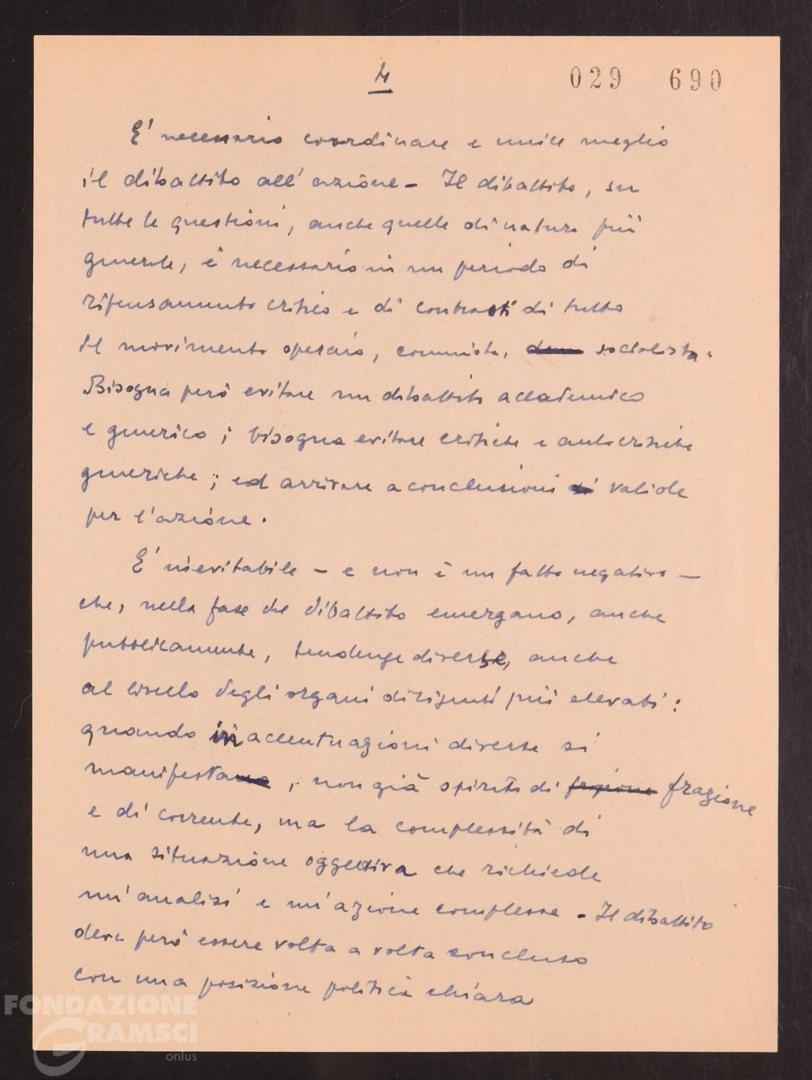 4
029 690
E' necessario coordinare e unire meglio
il dibattito all'azione - Il dibattito, su
tutte le questioni, anche quelle di natura più
generale, è necessario in un periodo di
ripensamento critico e di contrasti di tutto
il movimento operaio, comunista, socialista.
Bisogna però evitare un dibattito accademico
e generico; bisogna evitare critiche e autocritiche
generiche; ed arrivare a conclusioni valide
per l'azione.
E' inevitabile - e non è un fatto negativo -
che, nella fase del dibattito emergano, anche
pubblicamente, tendenze diverse, anche
al livello degli organi dirigenti più elevati:
quando in accentuazioni diverse si
manifesta, non già spirito di frazione
e di corrente, ma la complessità di
una situazione oggettiva che richiede
un'analisi e un'azione complesse - Il dibattito
deve però essere volta a volta concluso
con una posizione politica chiara
FONDAZIONE
GRAMSCI
onlus